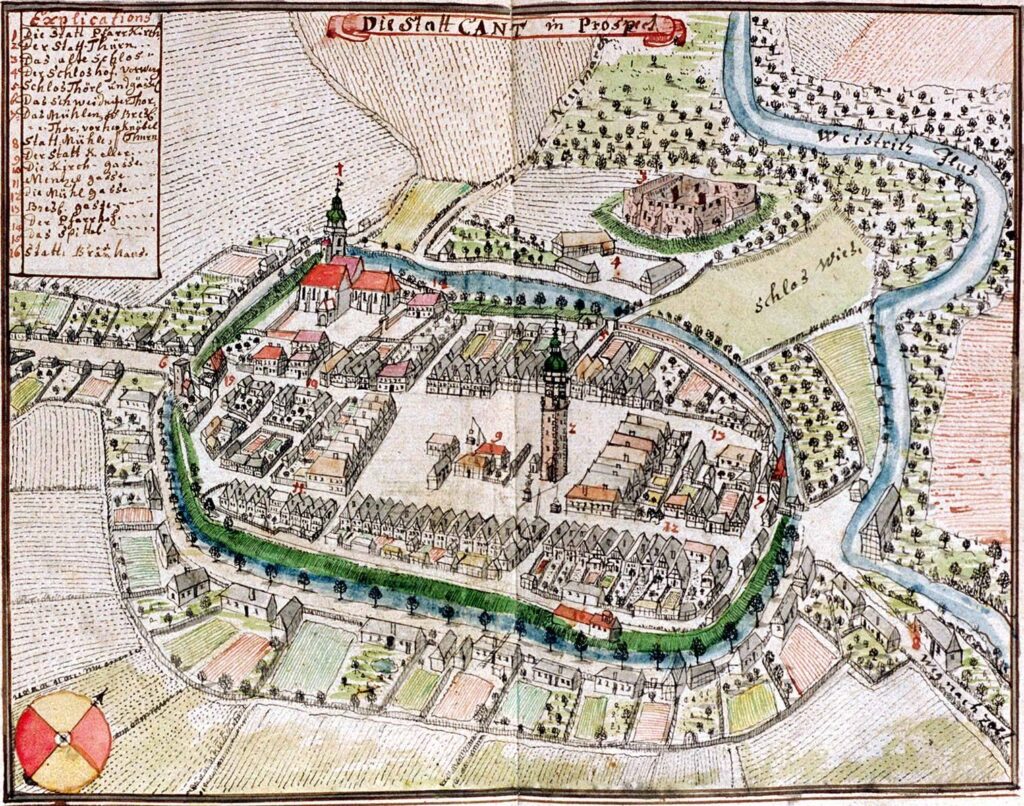 Die Statt CANT in Prospect
Explications
1 Die Statt Pfarr Kirch
2 Der Statt Thurn,
3 Das alte Schlos
4 Der Schloshof, vorwerg
5 Schlos Thörl und
6 Das Schweidnitzer Thor,
7 Das Mühlen, Bresl
Thor, vorher Thurn
8 Statt Mühle,
9 Der Statt Keller
10 Die Kirch gasse
11 gasse
12 Die Mühl gasse
13 Bresl gasse
14 Der Pfarrhof
15 Das Spittl
16 Statt Bräuhaus
Weistritz Flus
Schlos Wiese
1
2
3
4
5
6
7
9
10
11
12
13
14
15
8